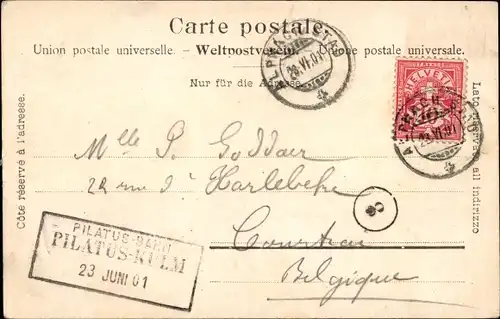 Carte postale.
Union postale universelle. – Weltpostverein – Unione postale universale.
Nur für die Adresse.
ALPNACH-STAD
23.VI.01
HELVETIA
10
ALPNACH-STAD
23.VI.01
Côte réservé à l'adresse.
Lato riservato all indirizzo
Mlle P. Goddaer
22 rue d'Harlebeke
Courtrai
Belgique
PILATUS-BAHN
PILATUS-KULM
23 JUNI 01